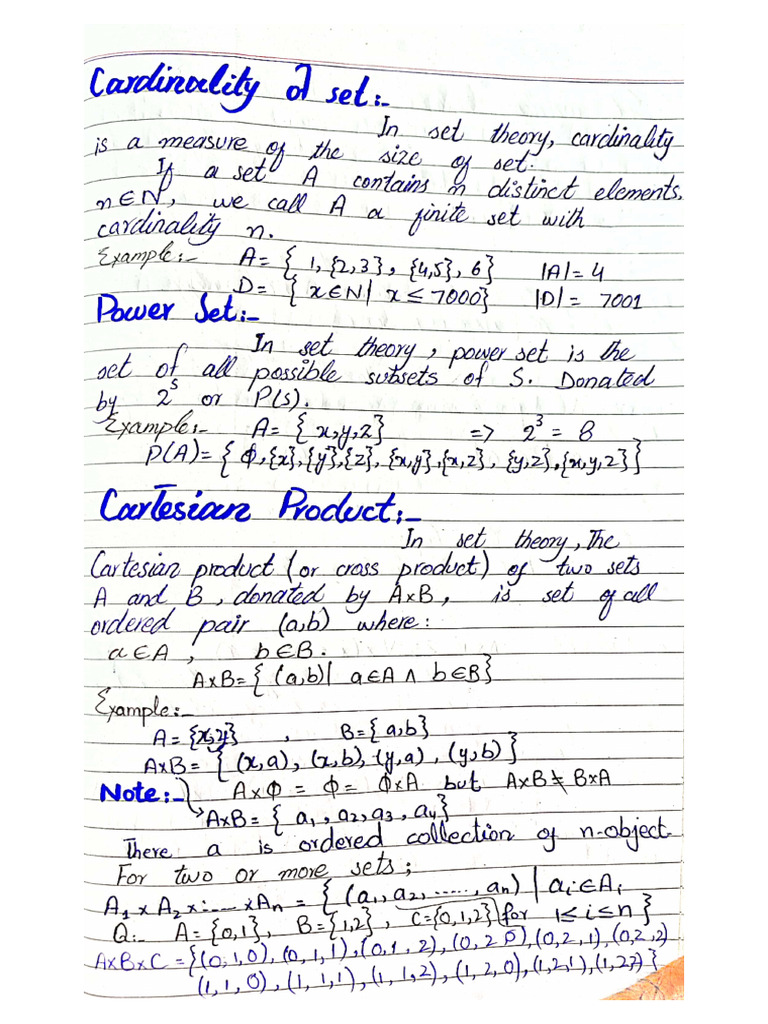 Cardinality of set:-
In set theory, cardinality
is a measure of the size of set.
If a set A contains n distinct elements,
n∈N, we call A a finite set with
cardinality n.
Example:- A = { 1, {2,3}, {4,5}, 6} |A| = 4
D = { x∈N | x ≤ 7000} |D| = 7001
Power Set:-
In set theory, power set is the
set of all possible subsets of S. Donated
by 2^s or P(s).
Example:- A = { x,y,z} => 2^3 = 8
P(A) = { Φ,{x},{y},{z},{x,y},{x,z},{y,z},{x,y,z}}
Cartesian Product:-
In set theory, The
Cartesian product (or cross product) of two sets
A and B, donated by A×B, is set of all
ordered pair (a,b) where:
a∈A, b∈B.
A×B = { (a,b) | a∈A ∧ b∈B}
Example:-
A = {x,y}, B = {a,b}
A×B = { (x,a), (x,b), (y,a), (y,b) }
Note:- A×Φ = Φ = Φ×A but A×B ≠ B×A
→ A×B = { a₁, a₂, a₃, a₄}
There a is ordered collection of n-object.
For two or more sets;
A₁ × A₂ ×:....×Aₙ = { (a₁, a₂, ....., aₙ) | aᵢ∈Aᵢ
Q:- A = {0,1}, B = {1,2}, C = {0,1,2} for 1≤i≤n}
A×B×C = {(0,1,0), (0,1,1), (0,1,2), (0,2,0), (0,2,1), (0,2,2)
(1,1,0), (1,1,1), (1,1,2), (1,2,0), (1,2,1), (1,2,2)}